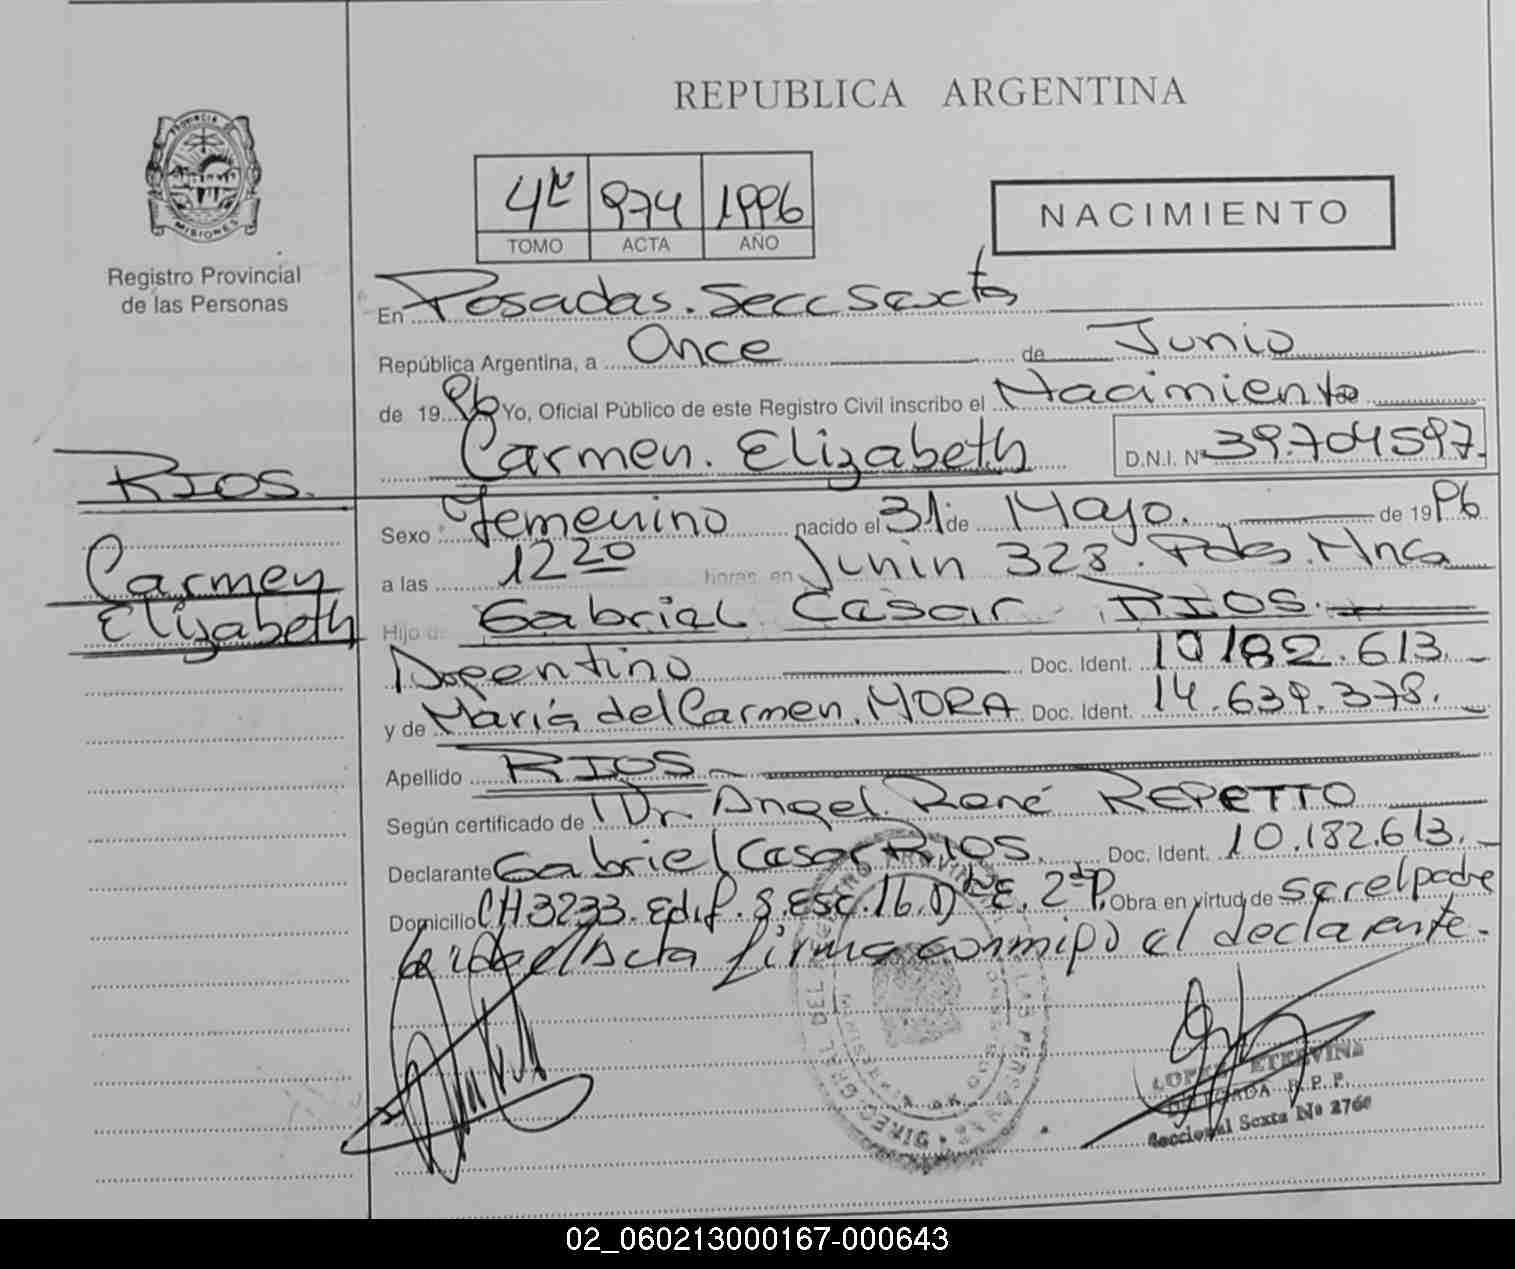 REPUBLICA ARGENTINA
PROVINCIA DE
MISIONES
Registro Provincial
de las Personas
974 1996
TOMO ACTA AÑO
NACIMIENTO
En Posadas. Secc Sexta
República Argentina, a Once de Junio
de 1996 Yo, Oficial Público de este Registro Civil inscribo el Nacimiento
Carmen. Elizabeth D.N.I. Nº 39.704597.
RIOS.
Carmen
Elizabeth
Sexo Femenino nacido el 31 de Mayo. de 1996
a las 1220 horas en Junin 328. Pdas. Mnes
Hijo de Gabriel Cesar RIOS.
Argentino Doc. Ident. 10182.613.
y de María del Carmen. MORA Doc. Ident. 14.639.378.
Apellido RIOS
Según certificado de Dr. Angel. René REPETTO
Declarante Gabriel Cesar RIOS. Doc. Ident. 10.182.613.
Domicilio CH 3233. Edif. 8. Esc. 16. Dto E. 2do P. Obra en virtud de ser el padre
Leida el Acta firma conmigo el declarante.
LOPEZ ETELVINA
DELEGADA R.P.P.
Seccional Sexta Nº 2760
02_060213000167-000643